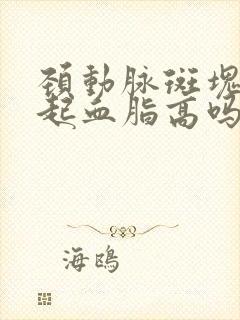 頚動脉斑塊
起血脂高吗
海鸥